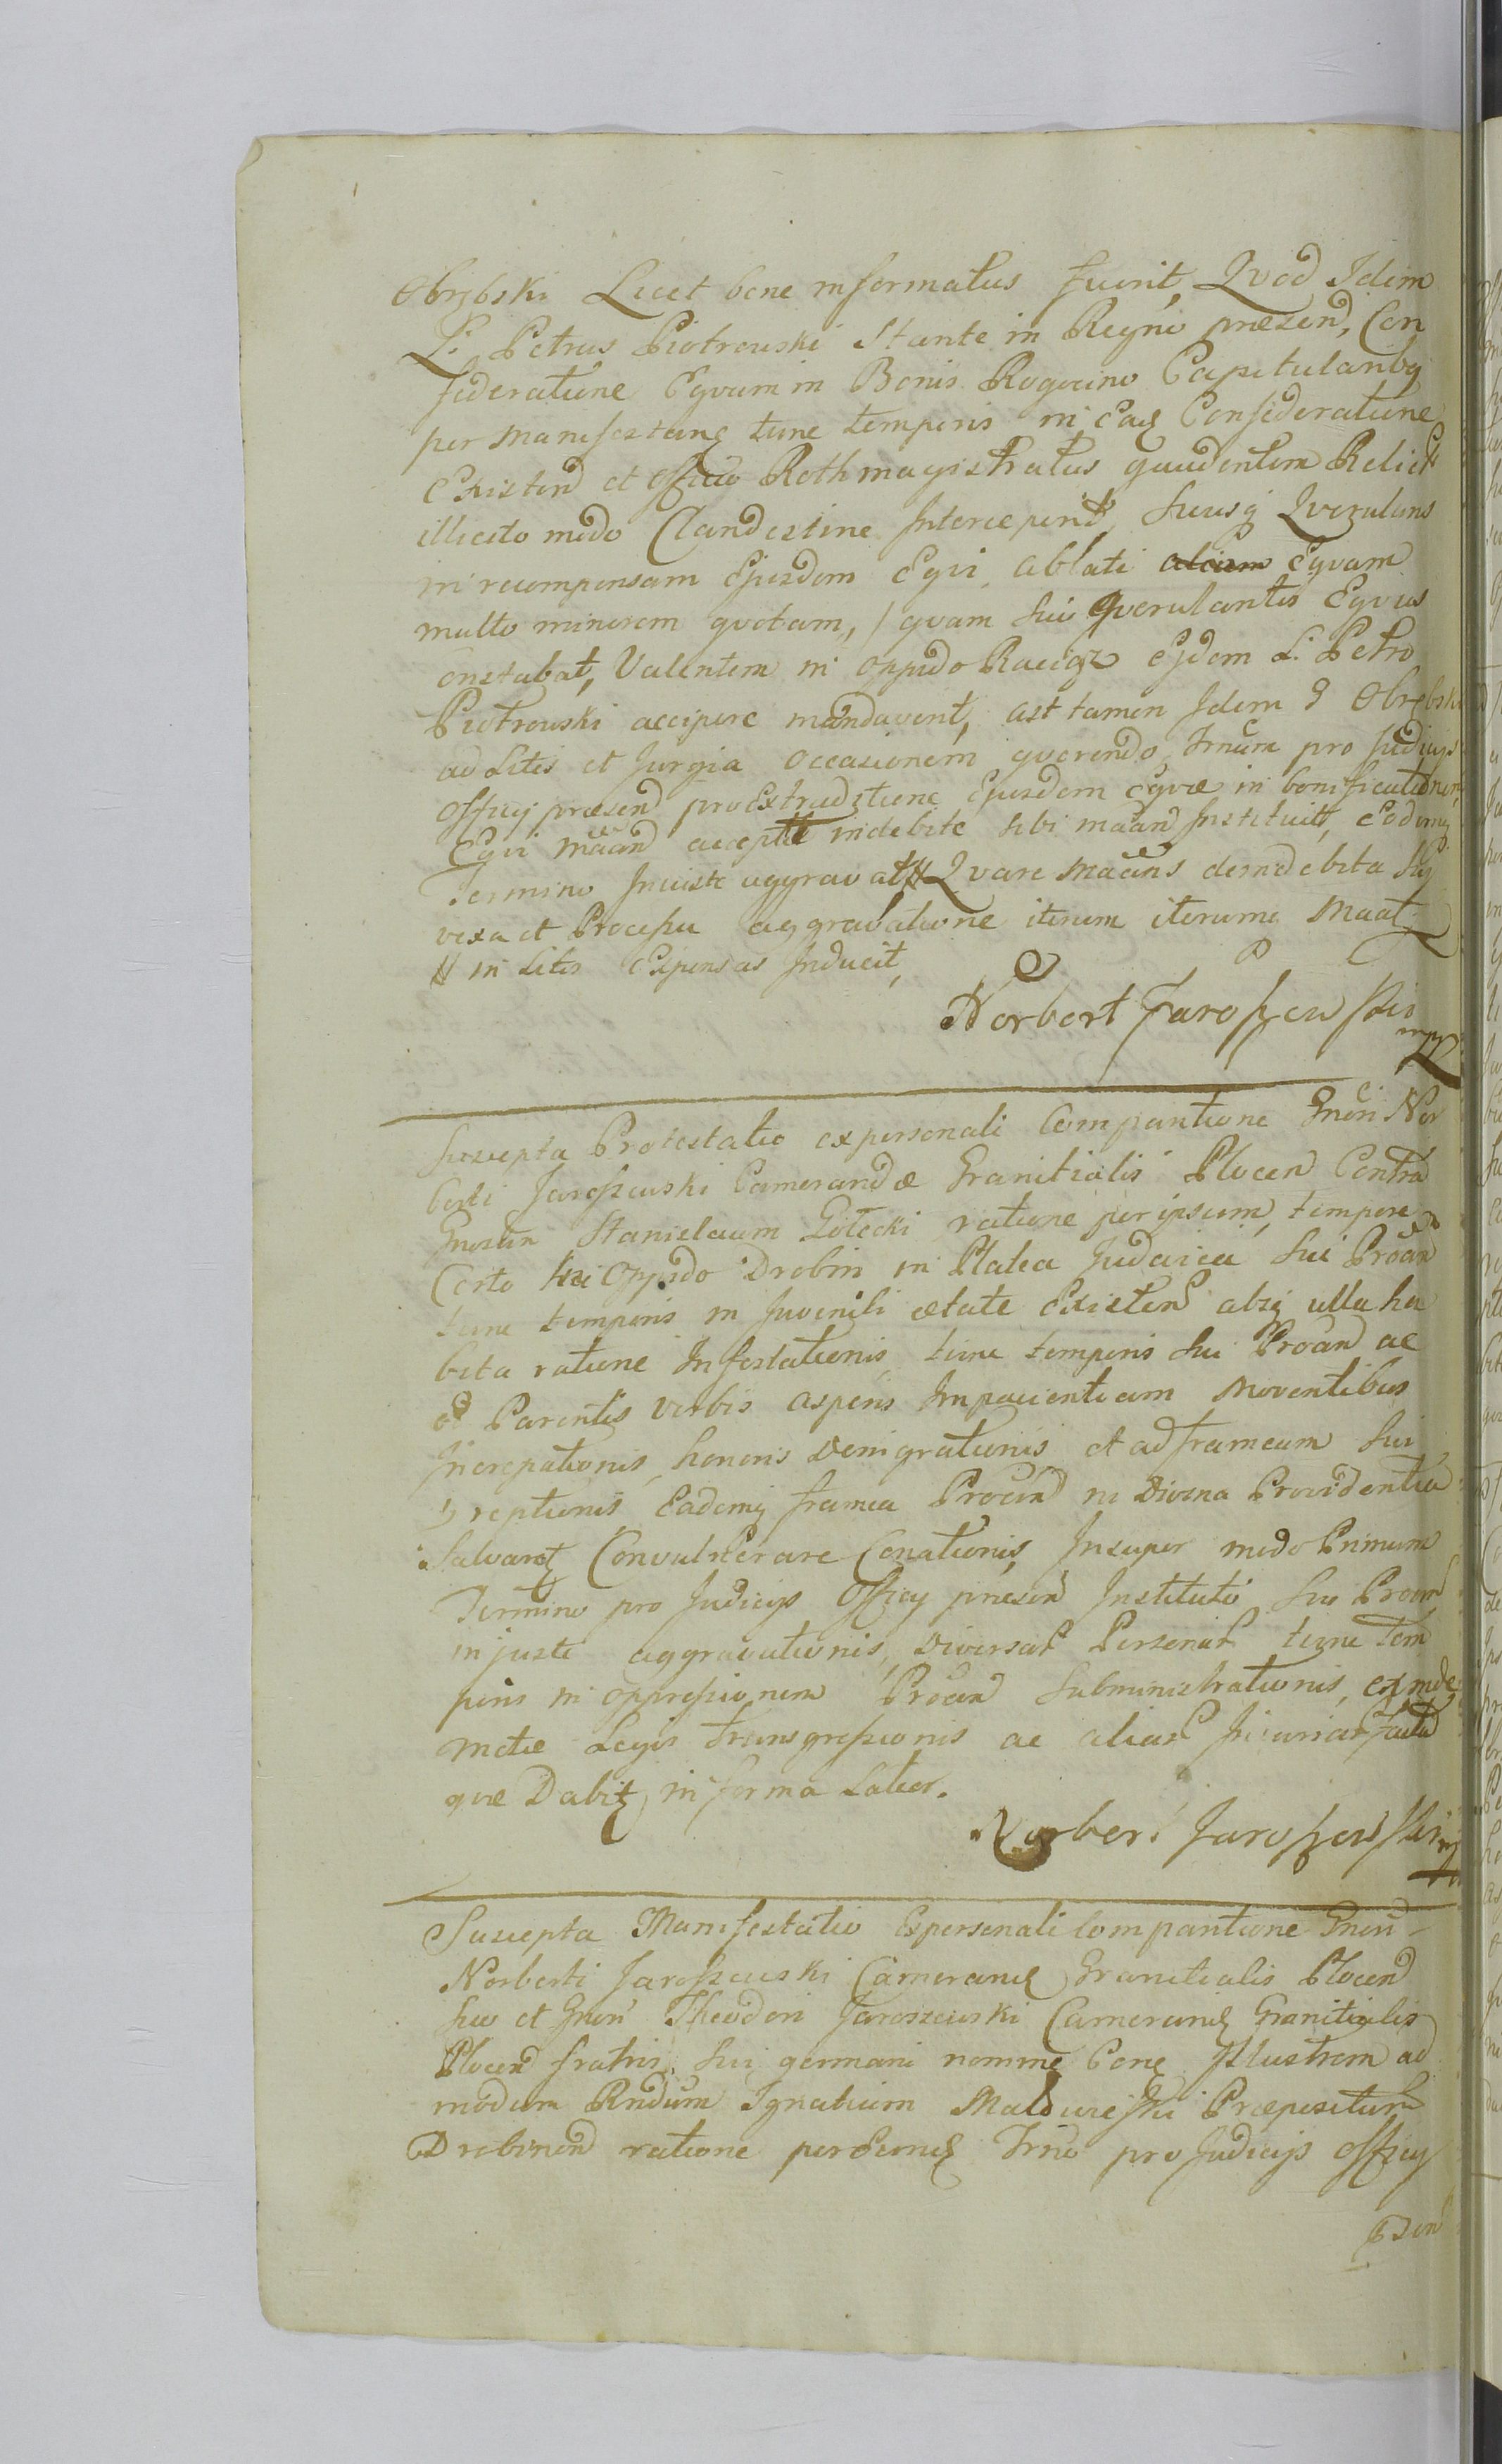 Obrębski Licet bene informatus fuerit, Qvod Idem
L. Petrus Piotrowski Stante in Regno præsend, Con
föderatione Eqvum in Bonis Rogocino Capitularibq
per Manifestanq tunc temporis in Eaq Confederatione
Existend et officio Rothmagistratus gaudentem Relict
illicito modo Clandestine Interceperit, Suusq Qverulans
in recompensam Ejusdem Eqvi ablati Eqvam
multo minorem qvotam, / qvam sui Qverulantis Eqvus
Constabat, Valentem in oppido Raciąż Ejdem L. Petro
Piotrowski accipere mandaverit, ast tamen Idem G Obrębski
ad Litis et Jurgia occasionem qverendo, Trnūm pro Judicijs
Officij præsend pro Extraditione Ejusdem eqvæ in bonificationem
Eqvi mãnd acceptæ indebite sibi mãand Instituit, Eodemq
Termino Iniuste aggravat # Qvare Mãans de indebita
vexa et Processu aggravatione iterum iterumq Maat
# in Litis Expensas Inducit,
Norbert Jaroszewski
mpp
Suscepta Protestatio ex personali Comparitione Gnõsi Nor
berti Jaroszewski Camerandæ Granitialis Plocen Contra
Gnosum Stanislaum Gołecki ratione per ipsum, tempore
Certo in Oppido Drobin in Platea Judaica sui Proãn
tunc temporis in Juvenili ætate Existen absq ulla ha
bita ratione Infestationis, tunc temporis sui Proãn ac
Parentis verbis asperis Impacientiam Moventibus
Increpationis, honoris Denigrationis, et ad frameam sui
reptionis Eademq framea Proãn ni Divina Providentia
Salvaret Convulnerare Conationis, Insuper modo Primum
Termino pro Judicijs Officij præsen Instituto sui Proãn
injuste aggravationis, Diversar Personar tunc tem
poris in oppressionem Proãn Subministrationis, ex inde
metæ Legis transgressionis ac aliar Iniuriar
qve Dabitq in forma Latior.
Norbert Jaroszewski mp
Suscepta Manifestatio Ex personali Comparitione Gnosi
Norberti Jaroszewski Cameranq Granitialis Plocen
suo et Gnosi Theodori Jaroszewski Cameranq Granitialis
Plocen fratris sui germani nomine Conq Illustrem ad
modum Rndum Ignatium Præpositum
Drobinen ratione per Eumq Trno pro Judicijs officij